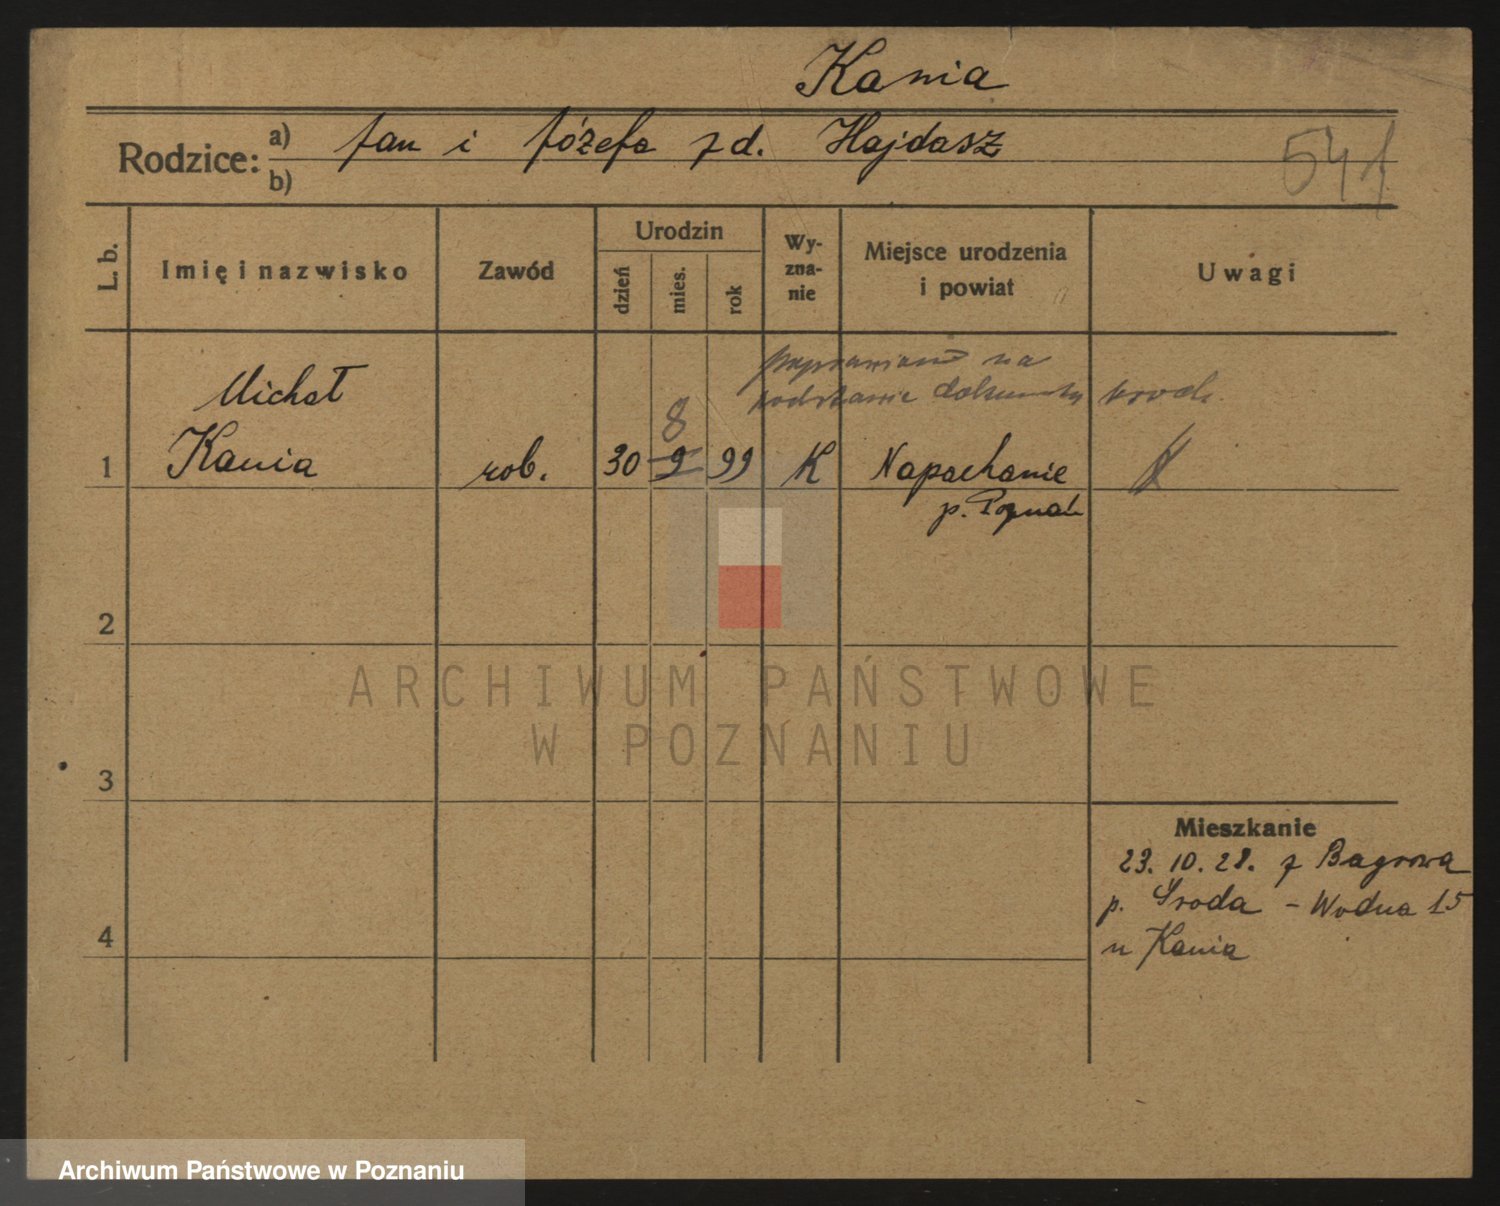 Kania
Rodzice: a) Jan i Józefa z d. Hajdasz
b)
541
L. b. Imię i nazwisko Zawód Urodzin dzień mies. rok Wy-zna-nie Miejsce urodzenia i powiat Uwagi
poprawiono na
podstawie dokumentu urodz.
Michał
8
1 Kania rob. 30 9 99 K Napachanie
p. Poznań
2
ARCHIWUM PAŃSTWOWE
W POZNANIU
3
Mieszkanie
23. 10. 28. z Bagrowa
p. Środa - Wodna 15
4
u Kania
Archiwum Państwowe w Poznaniu